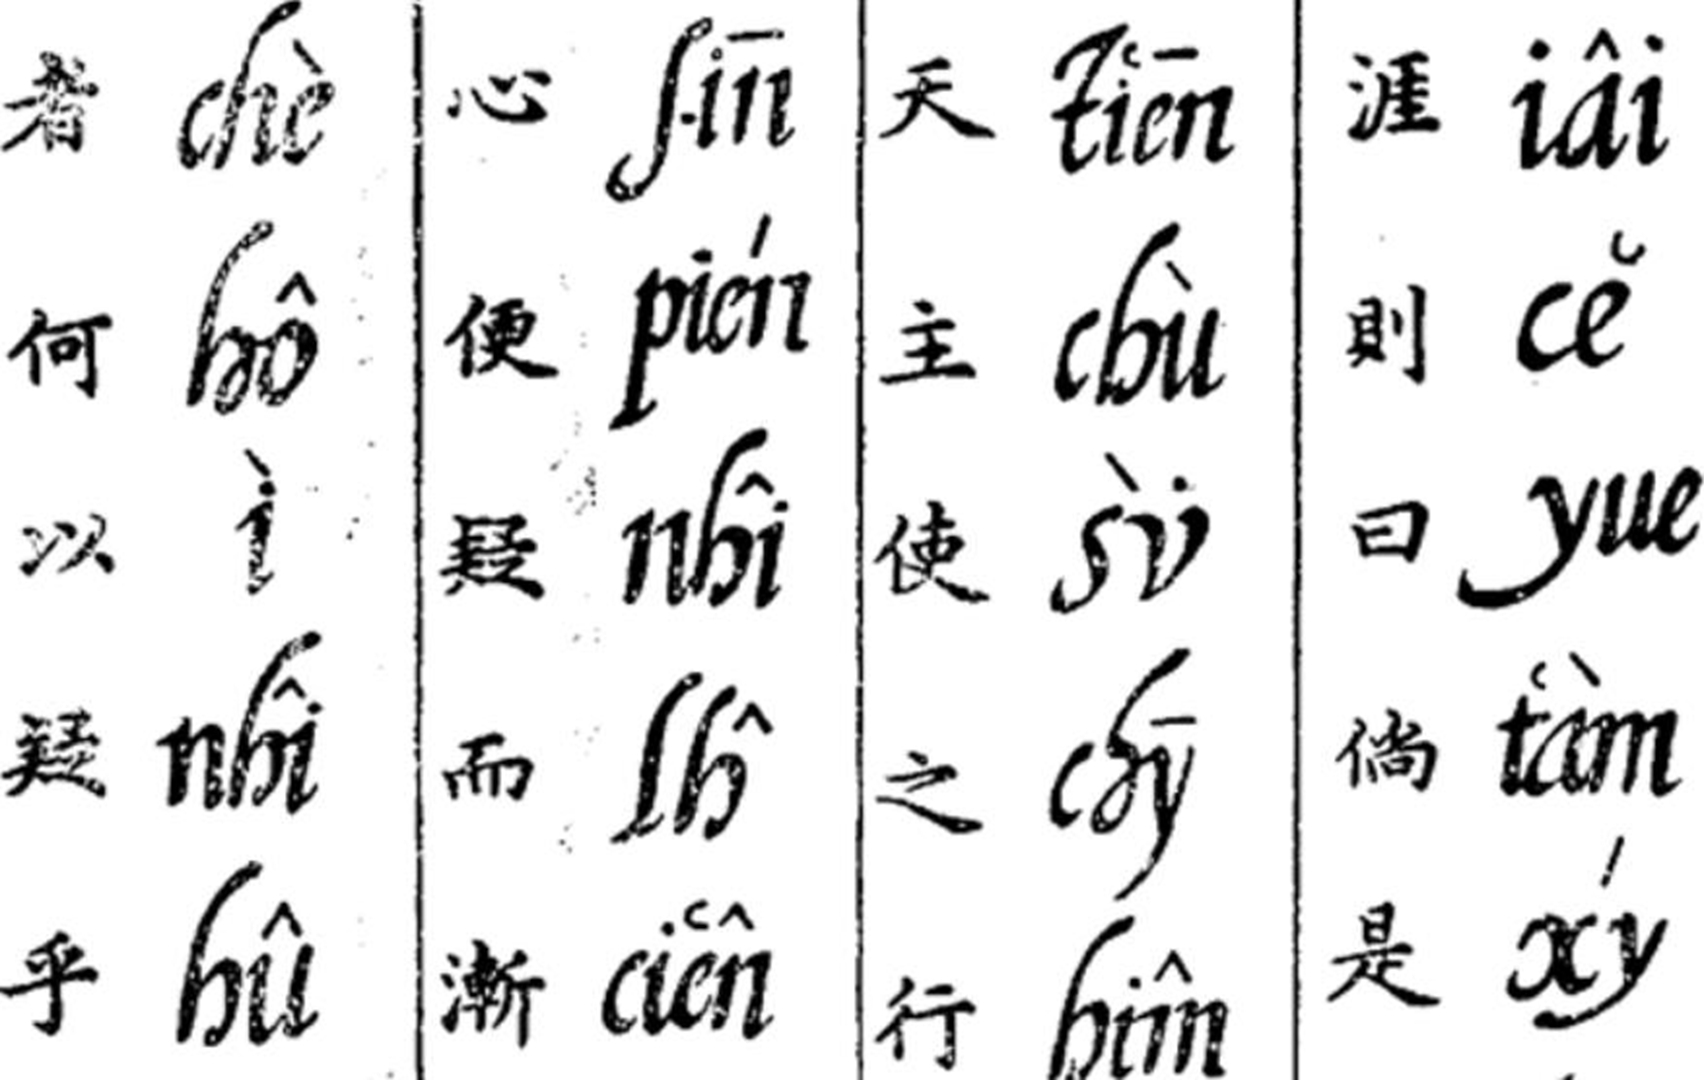 涯 iâi 則 cĕ 曰 yue 倘 tʿàm 是 xý
天 tʿiēn 主 chù 使 sv̇̀ 之 chȳ 行 hîm
心 ſīn 便 pién 疑 nhî 而 lĥ 漸 cʿiên
者 chè 何 hô 以 ì 疑 nhî 乎 hû